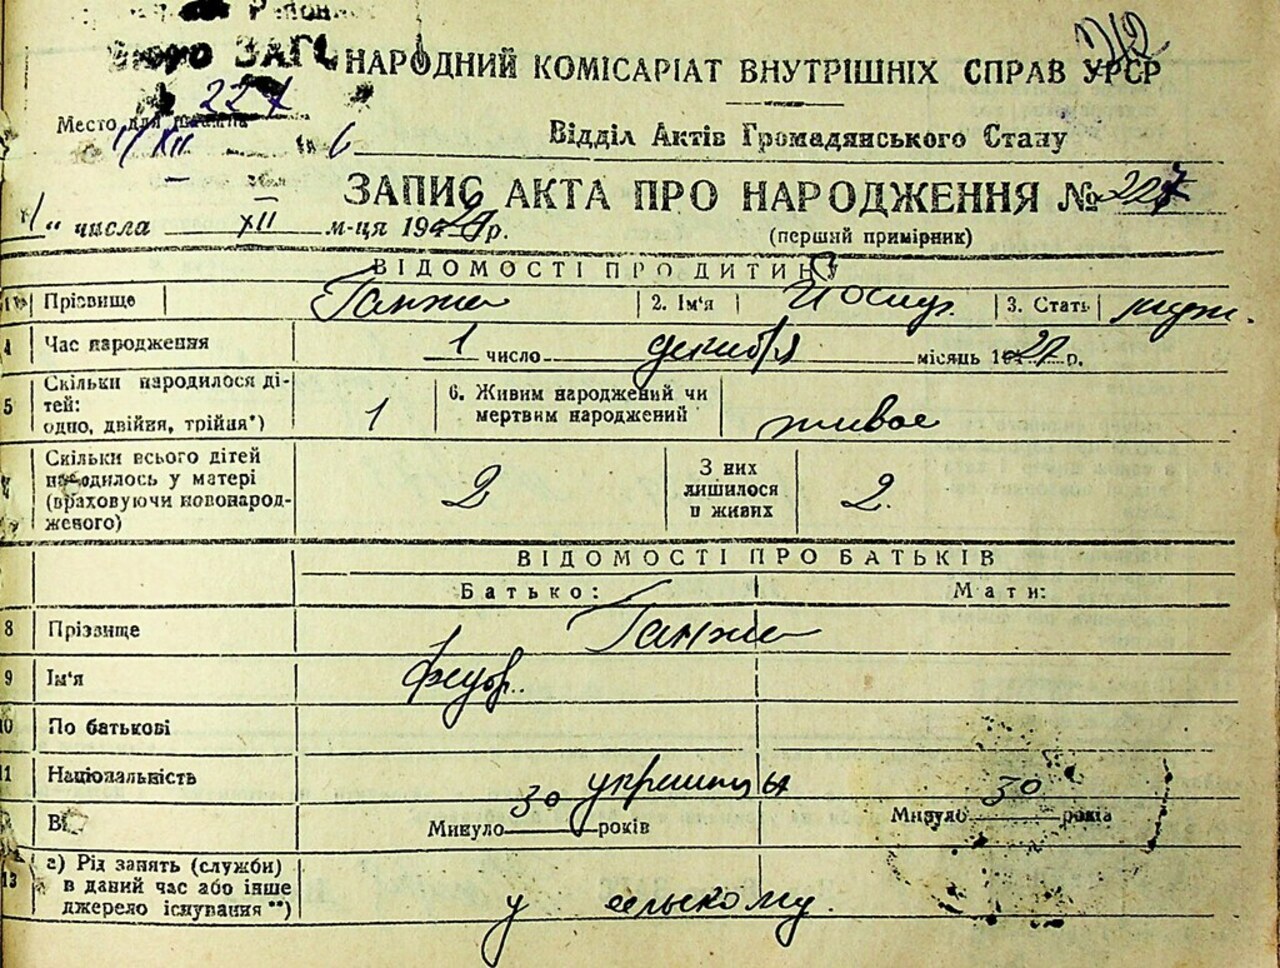 Бюро ЗАГС
742
НАРОДНИЙ КОМІСАРІАТ ВНУТРІШНІХ СПРАВ УРСР
227
Место для штампа
1/XII 6
Відділ Актів Громадянського Стану
ЗАПИС АКТА ПРО НАРОДЖЕННЯ № 227
„1“ числа XII м-ця 194 р.
(перший примірник)
ВІДОМОСТІ ПРО ДИТИНУ
1 Прізвище Ганжа 2. Ім'я Йосиф. 3. Стать муж.
4 Час народження 1 число декабря місяць 19 р.
5 Скільки народилося ді-
тей:
одно, двійня, трійня*) 1 6. Живим народжений чи
мертвим народжений живое
7 Скільки всього дітей
народилось у матері
(враховуючи новонарод-
женого) 2 З них
лишилося
в живих 2.
ВІДОМОСТІ ПРО БАТЬКІВ
Батько: Мати:
8 Прізвище Ганжа
9 Ім'я
10 По батькові
11 Національність украинцы
Ві Минуло 30 років Минуло 30 років
13 а) Рід занять (служби)
в даний час або інше
джерело існування **) у сельхому.